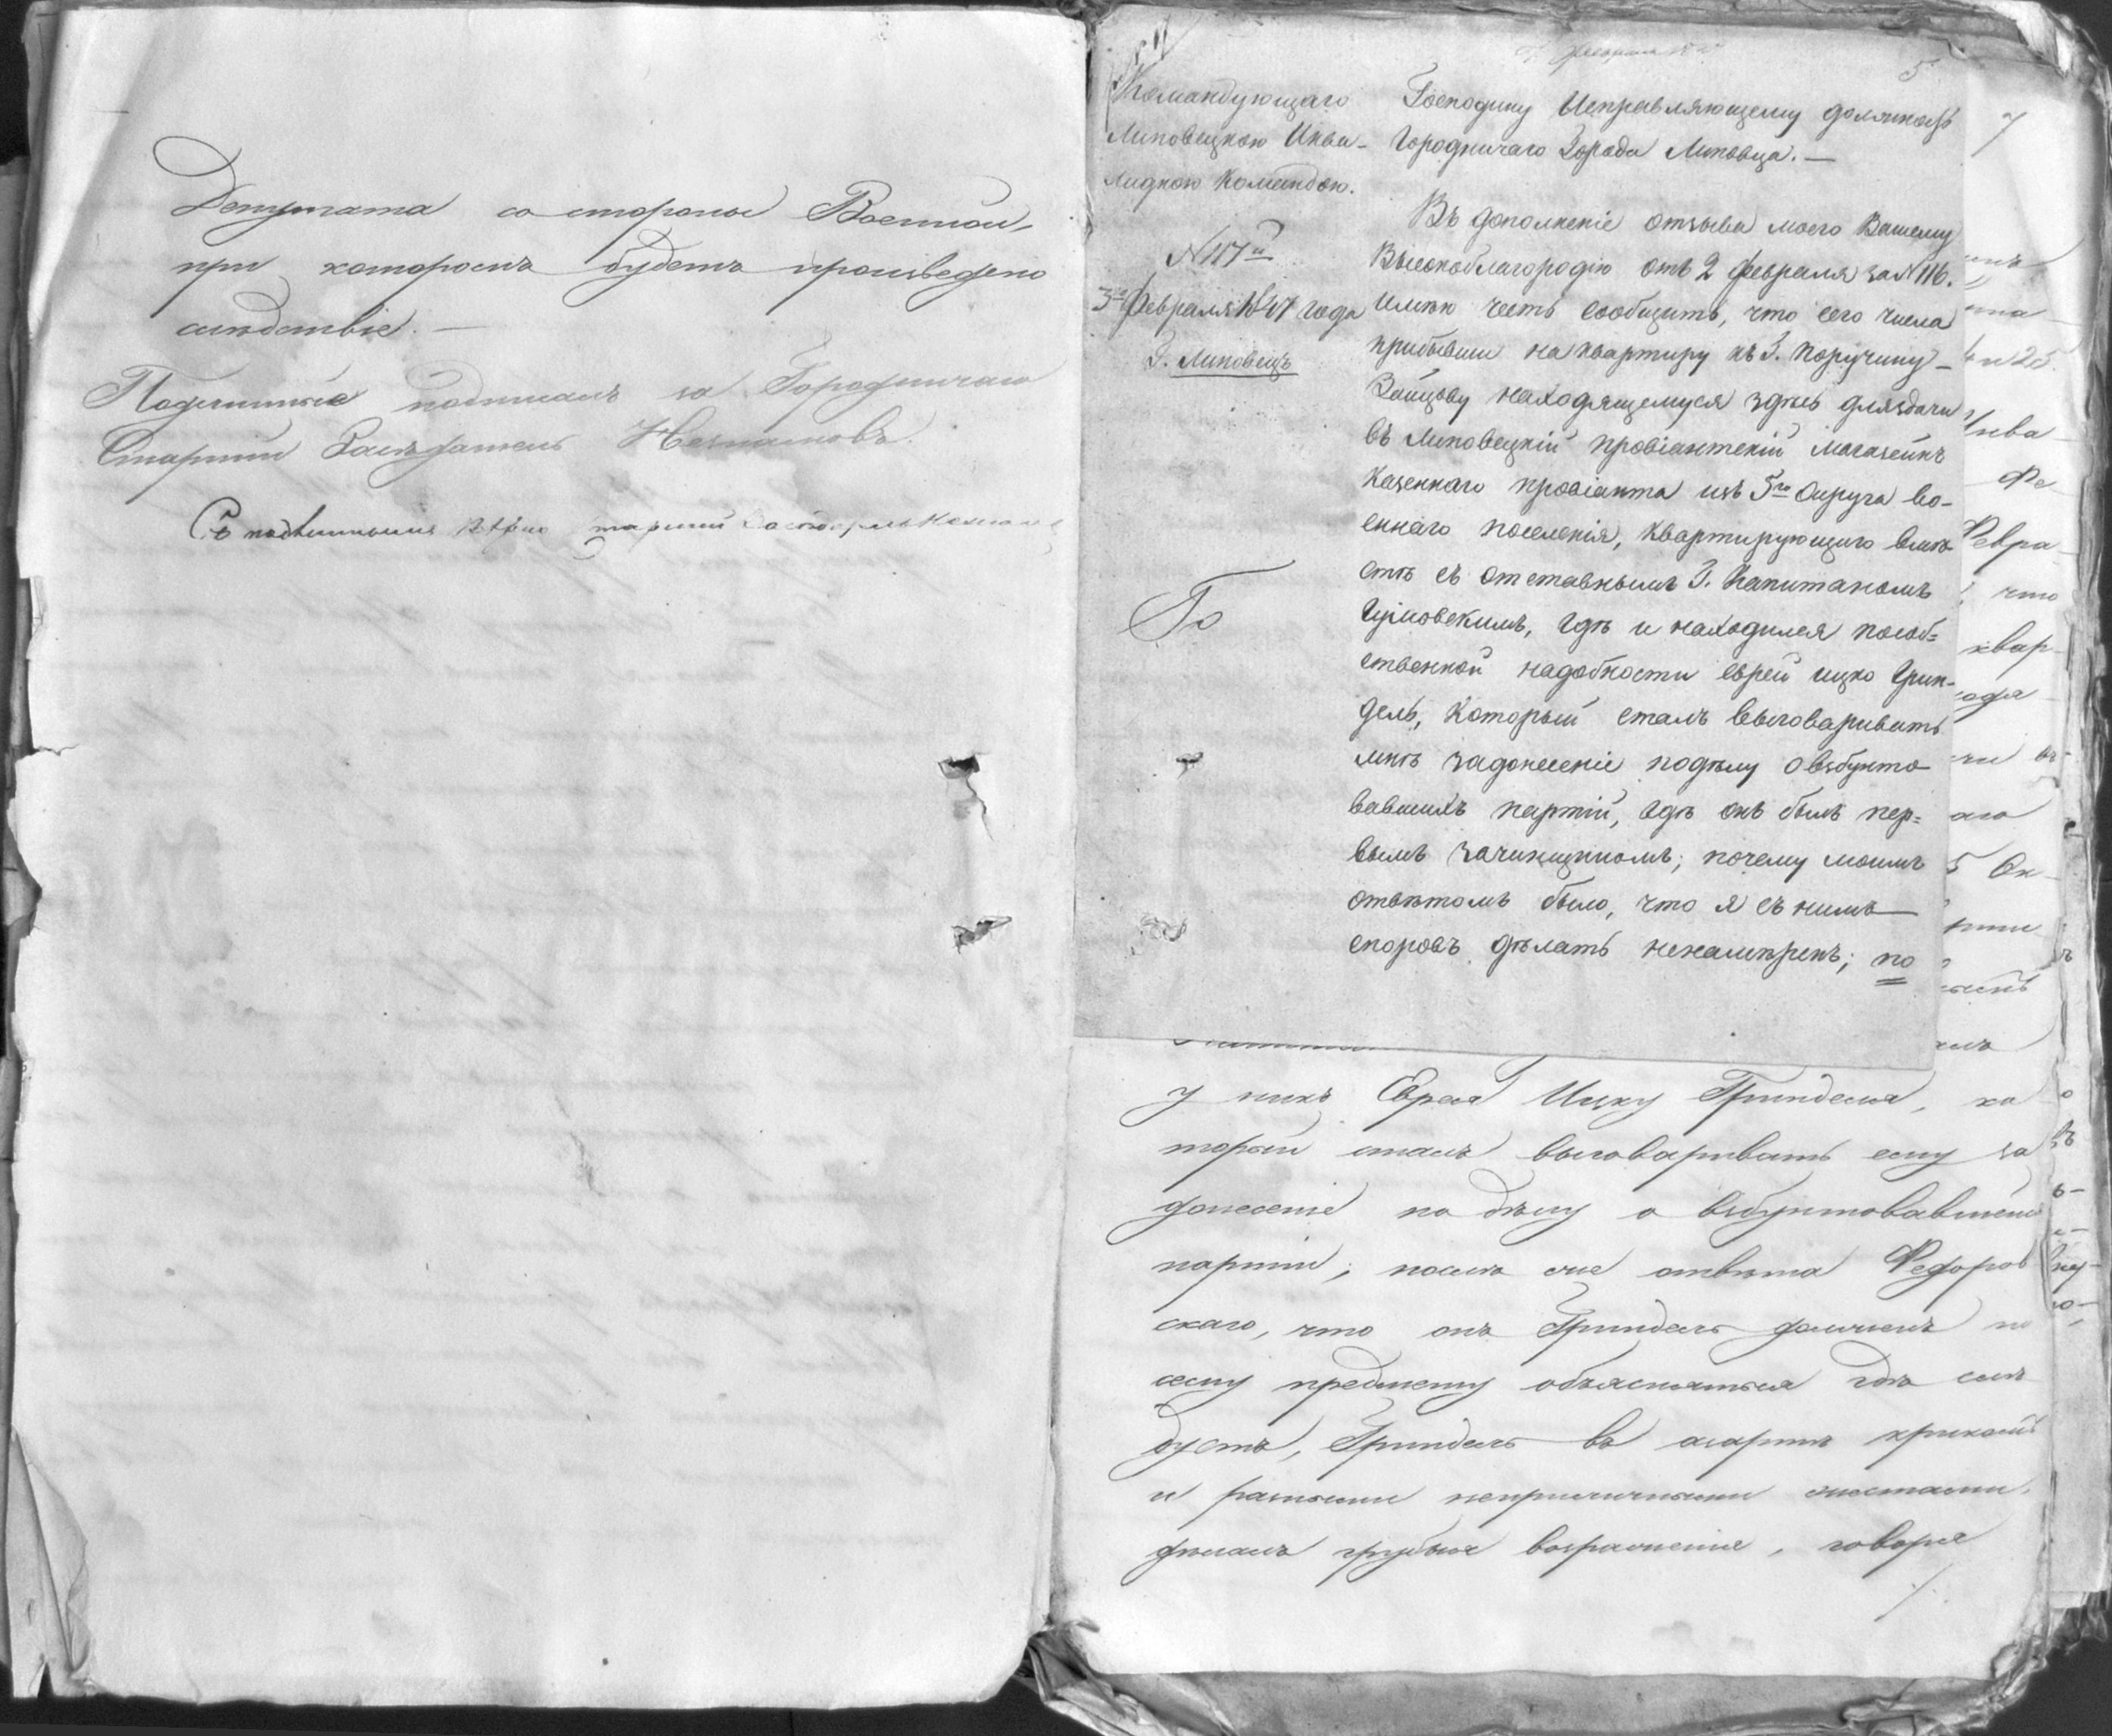 Депутата со стороны Военной,
при которомъ будетъ произведено
слѣдствіе. —
Подлинное подписалъ за Городничаго
Старшій Засѣдатель
Съ подлиннымъ вѣрно
5
7
Командующаго
Липовецкою Инва-
лидною Командою.
№ 117й
3го Февраля 1847 года
Г. Липовецъ
Господину Исправляющему должность
Городничаго Города Липовца. —
Въ дополненіе отзыва моего Вашему
Высокоблагородію отъ 2 февраля за № 116.
имѣю честь сообщить, что сего числа
прибывши на квартиру къ Г. Поручику
Зайцову находящемуся здѣсь для сдачи
въ Липовецкій провіантскій магазейнъ
казеннаго провіанта изъ 5го Округа во-
еннаго поселенія, квартирующаго вмѣ-
стѣ съ отставнымъ Г. Капитаномъ
гдѣ и находился пособ=
ственной надобности еврей ицко Грин-
дель, который сталъ выговаривать
мнѣ задонесеніе подѣлу овзбунто
вавшихъ партій, гдѣ онъ былъ пер=
вымъ зачинщикомъ; почему моимъ
отвѣтомъ было, что я съ нимъ
споровъ дѣлать ненамѣренъ; по
у нихъ Еврея Ицку Гринделя, ко
торый сталъ выговаривать ему за
донесеніе по дѣлу о взбунтовавшейся
партіи; послѣ чего отвѣта Федоров
скаго, что онъ Гриндель долженъ по
сему предмету объясняться гдѣ слѣ
дуетъ, Гриндель въ азартѣ крикомъ
и разными неприличными жестами
дѣлалъ грубыя возраженія, говоря